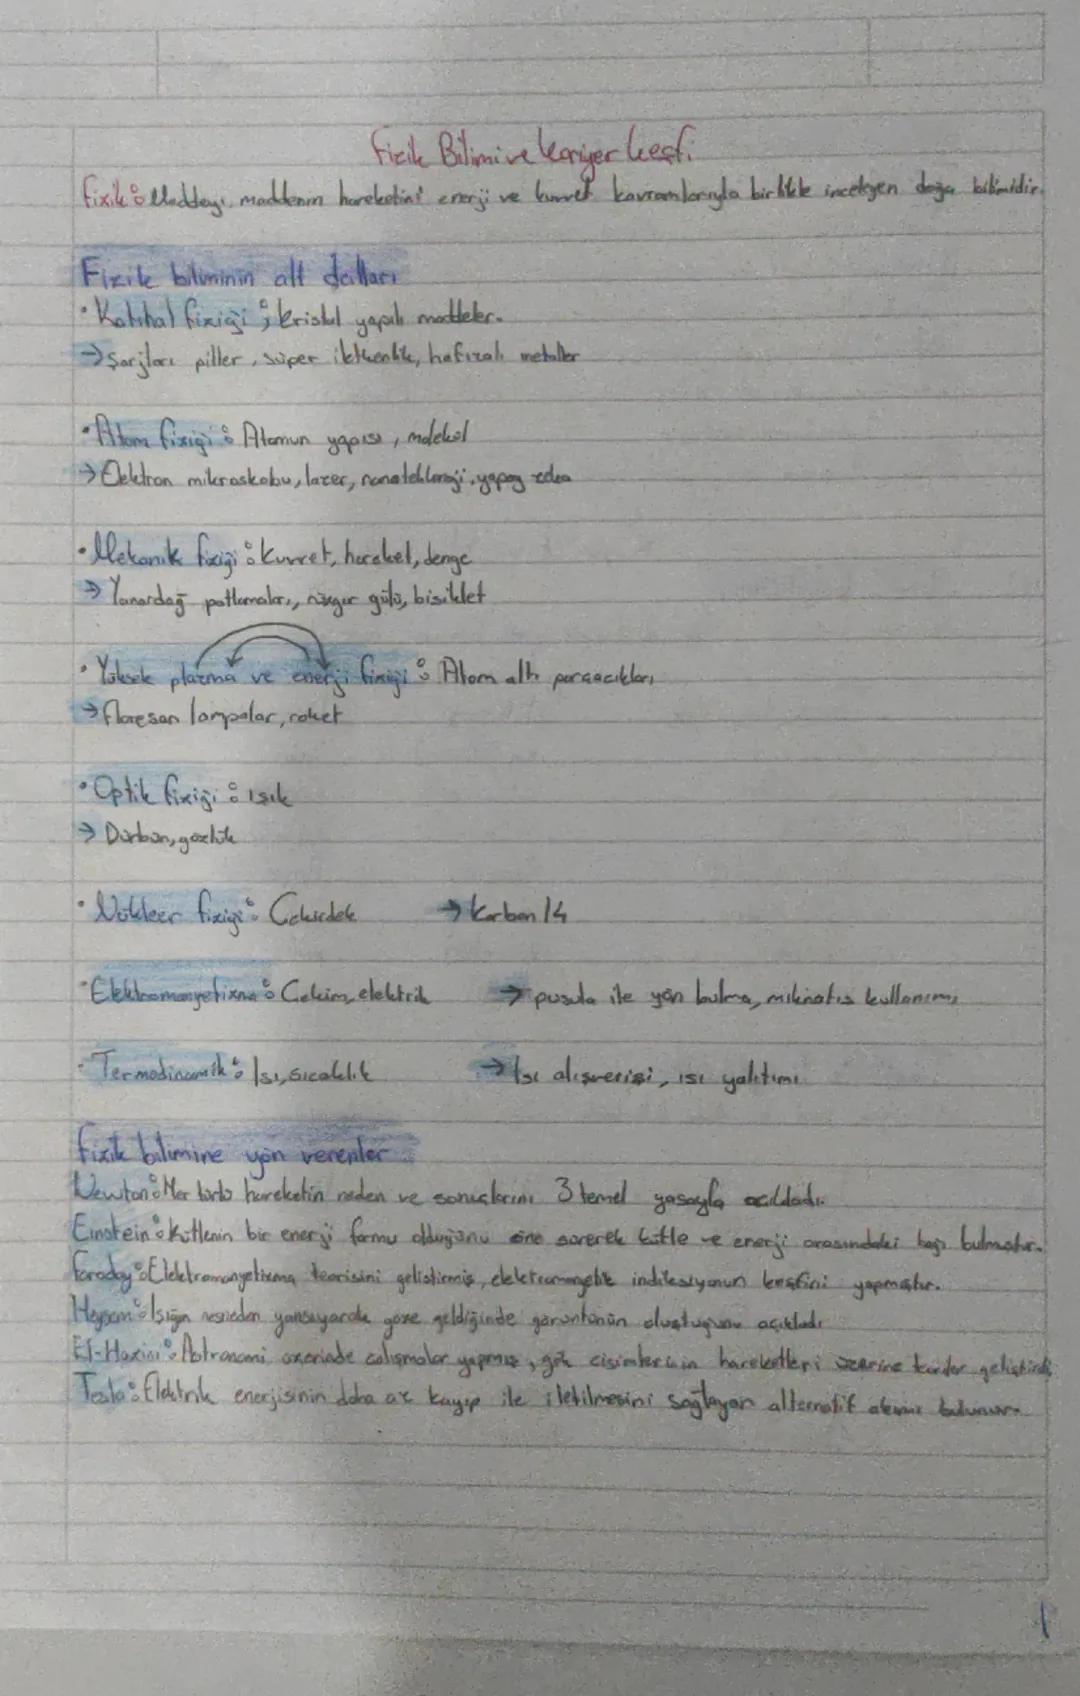 Fizik Bilimi ve kariyer keşfi
Fizik: Maddeyi, maddenin hareketini enerji ve kuvvet kavramlarıyla birlikte inceleyen doğa bilimidir.
Fizik biliminin alt dalları
• Katıhal fiziği; kristal yapılı maddeler.
→ Şarjları piller, süper iletkenlik, hafızalı metaller
• Atom fiziği: Atomun yapısı, molekül
→ Elektron mikroskobu, lazer, nanoteknoloji, yapay zeka
• Mekanik fiziği: kuvvet, hareket, denge
→ Yanardağ patlamaları, rüzgar gülü, bisiklet
• Yüksek plazma ve enerji fiziği: Atom altı parçacıkları
→ floresan lampalar, roket
• Optik fiziği: ışık
→ Dürbün, gözlük
• Nükleer fiziği: Çekirdek → Karbon 14
• Elektromanyetizma: Çekim, elektrik → pusula ile yön bulma, mıknatıs kullanımı
• Termodinamik: Isı, sıcaklık → Isı alışverişi, ısı yalıtımı
Fizik bilimine yön verenler
Newton: Her türlü hareketin neden ve sonuçlarını 3 temel yasayla açıkladı.
Einstein: Kütlenin bir enerji formu olduğunu öne sürerek kütle ve enerji arasındaki bağı bulmuştur.
Faraday: Elektromanyetizma teorisini geliştirmiş, elektromanyetik indiksiyonun keşfini yapmıştır.
Heysem: Işığın nesneden yansıyarak göze geldiğinde görüntünün oluştuğunu açıkladı
El-Hazini: Astronomi üzerinde çalışmalar yapmış, gök cisimlerinin hareketleri üzerine geliştirdi
Tesla: Elektrik enerjisinin daha az kayıp ile iletilmesini sağlayan alternatif akımı
1